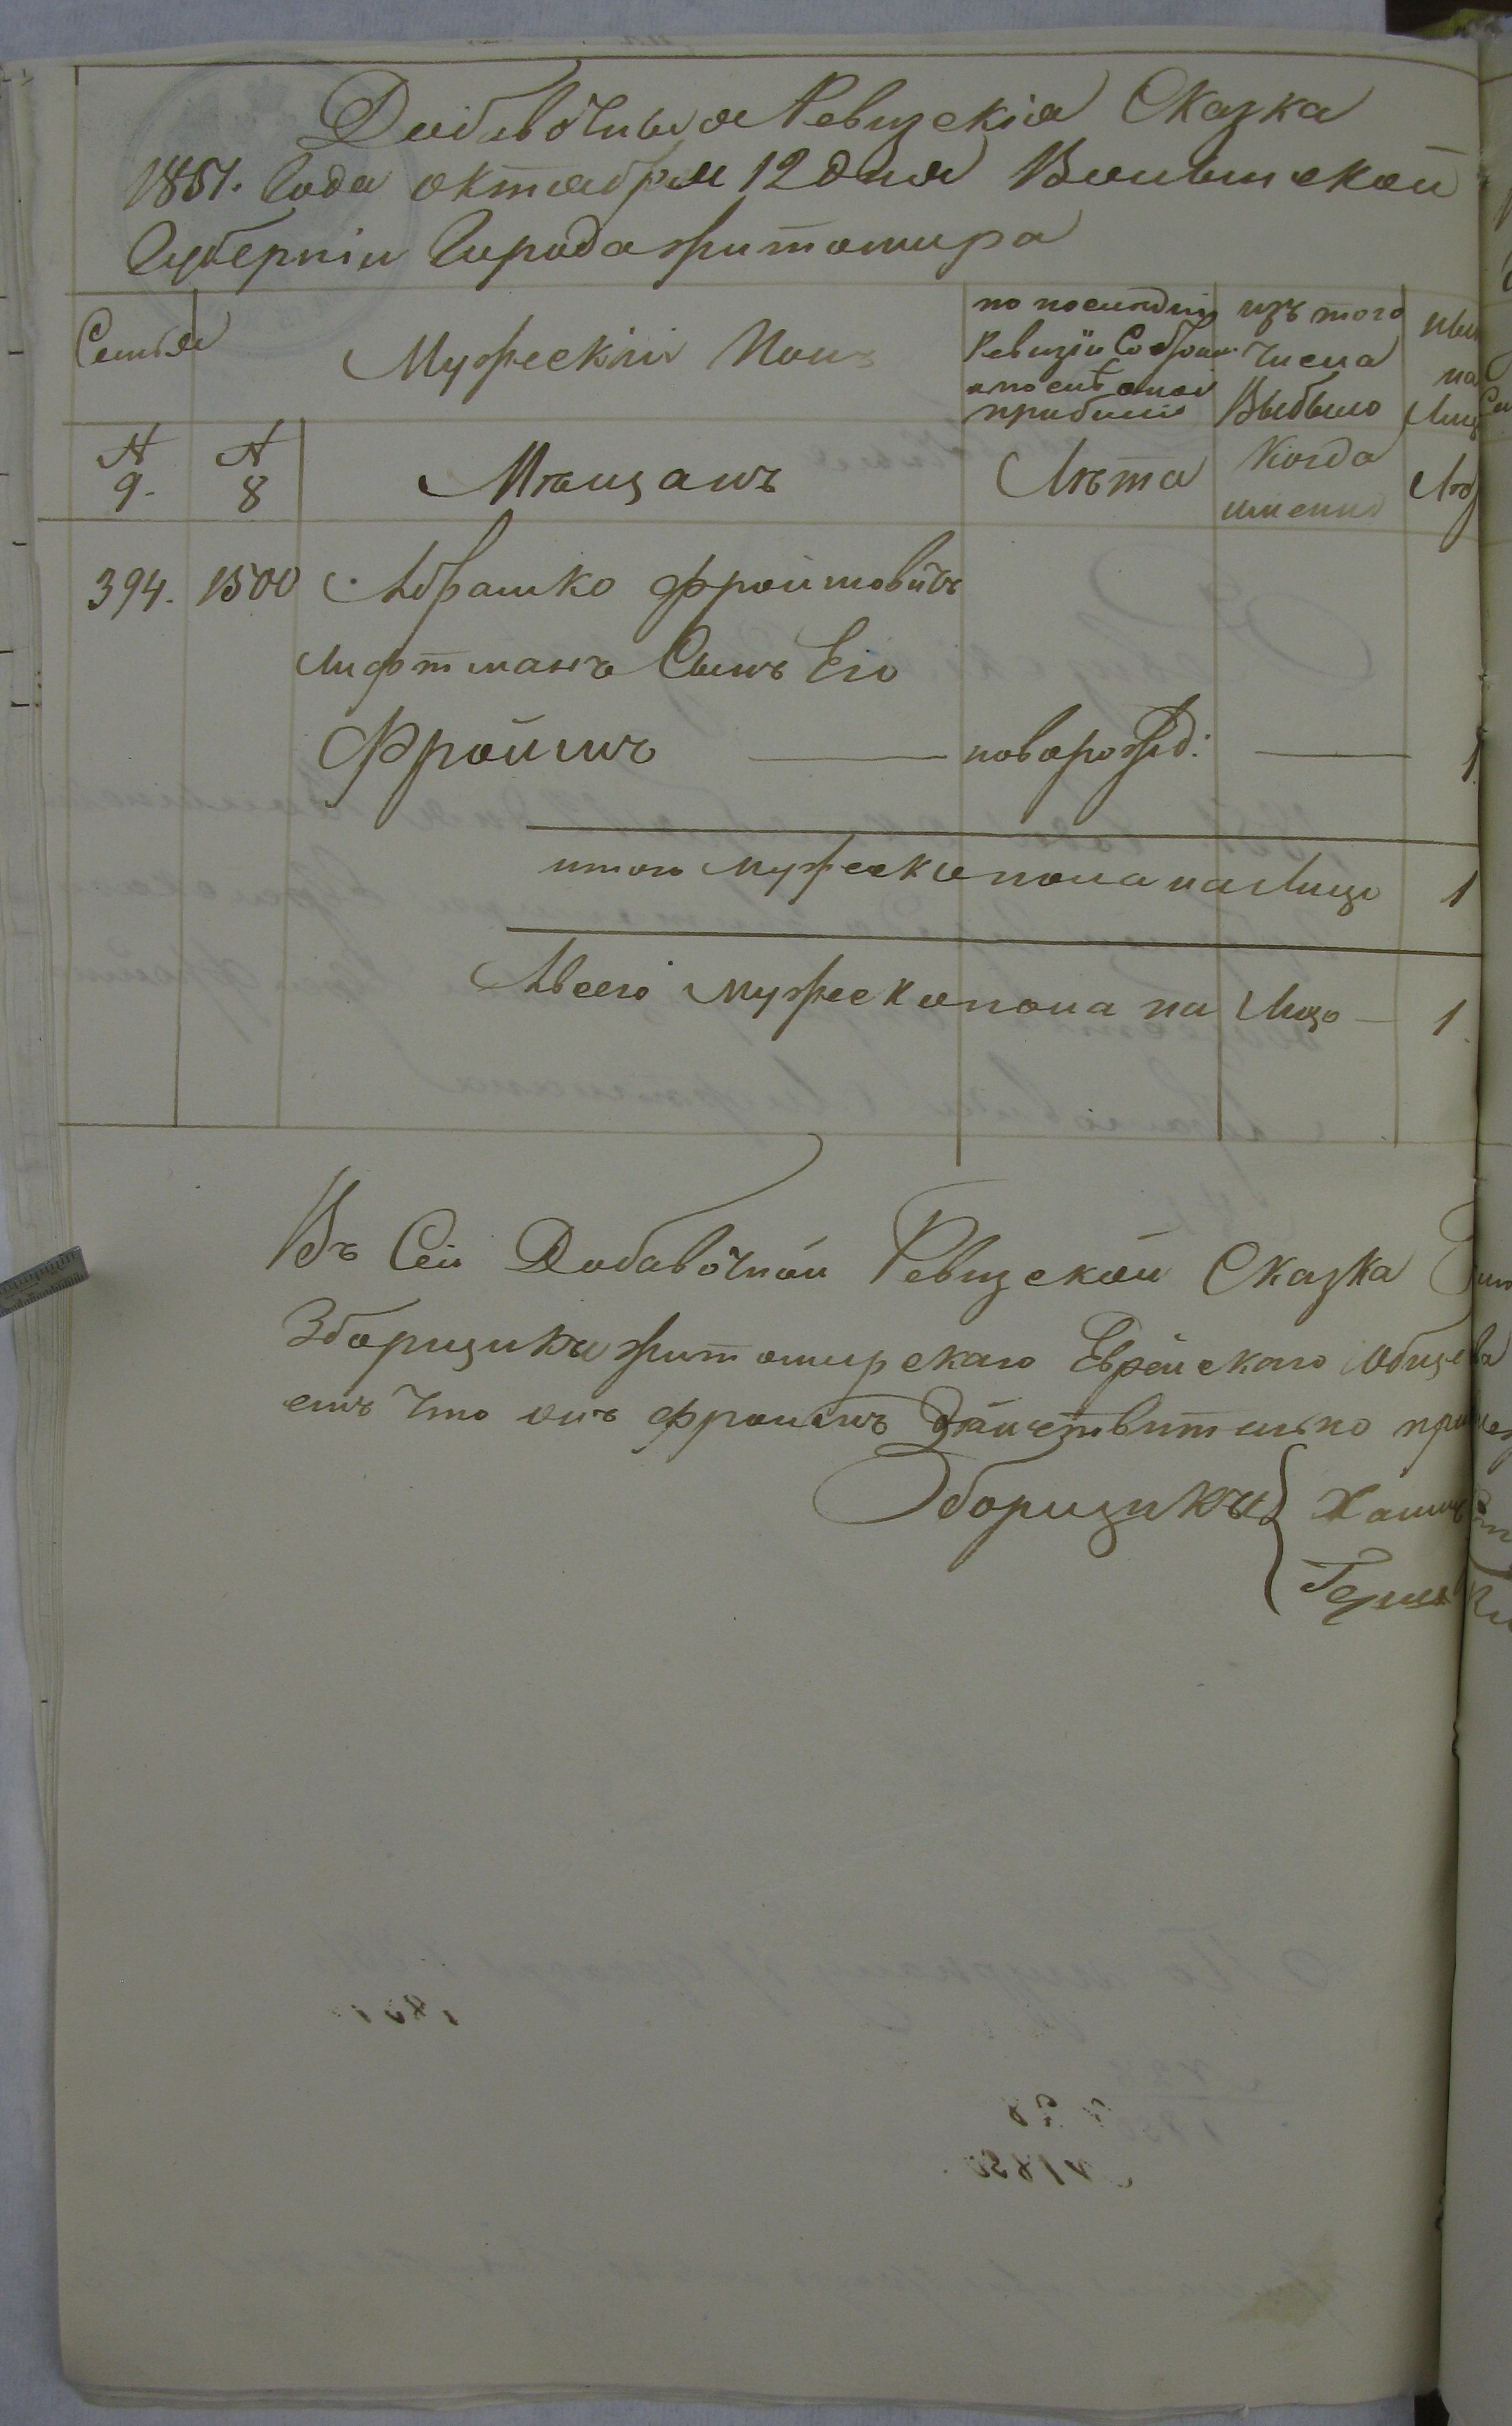 Добавочныя Ревизскія Сказка
1851. Года октября 12 дня Волынской
Губерніи Города Житомира
Семья
Мужескій Полъ
по последней Ревизіи Состояло и после оной прибыло
изъ того числа Выбыло
на Лицо
N 9.
N 8
Мещанъ
Лета
Когда именно
394. 1500 Абрамко Фроимовичъ
Лифтманъ Сынъ Его
Фроимъ — новорожд: — 1
итого Мужеска пола на Лицо 1
А всего Мужеска пола на Лицо — 1.
Въ Сей Добавочной Ревизской Сказка
Зборщики Житомирскаго Еврейскаго
етъ что онъ Фроимъ Действительно
Зборщики { Хаимъ